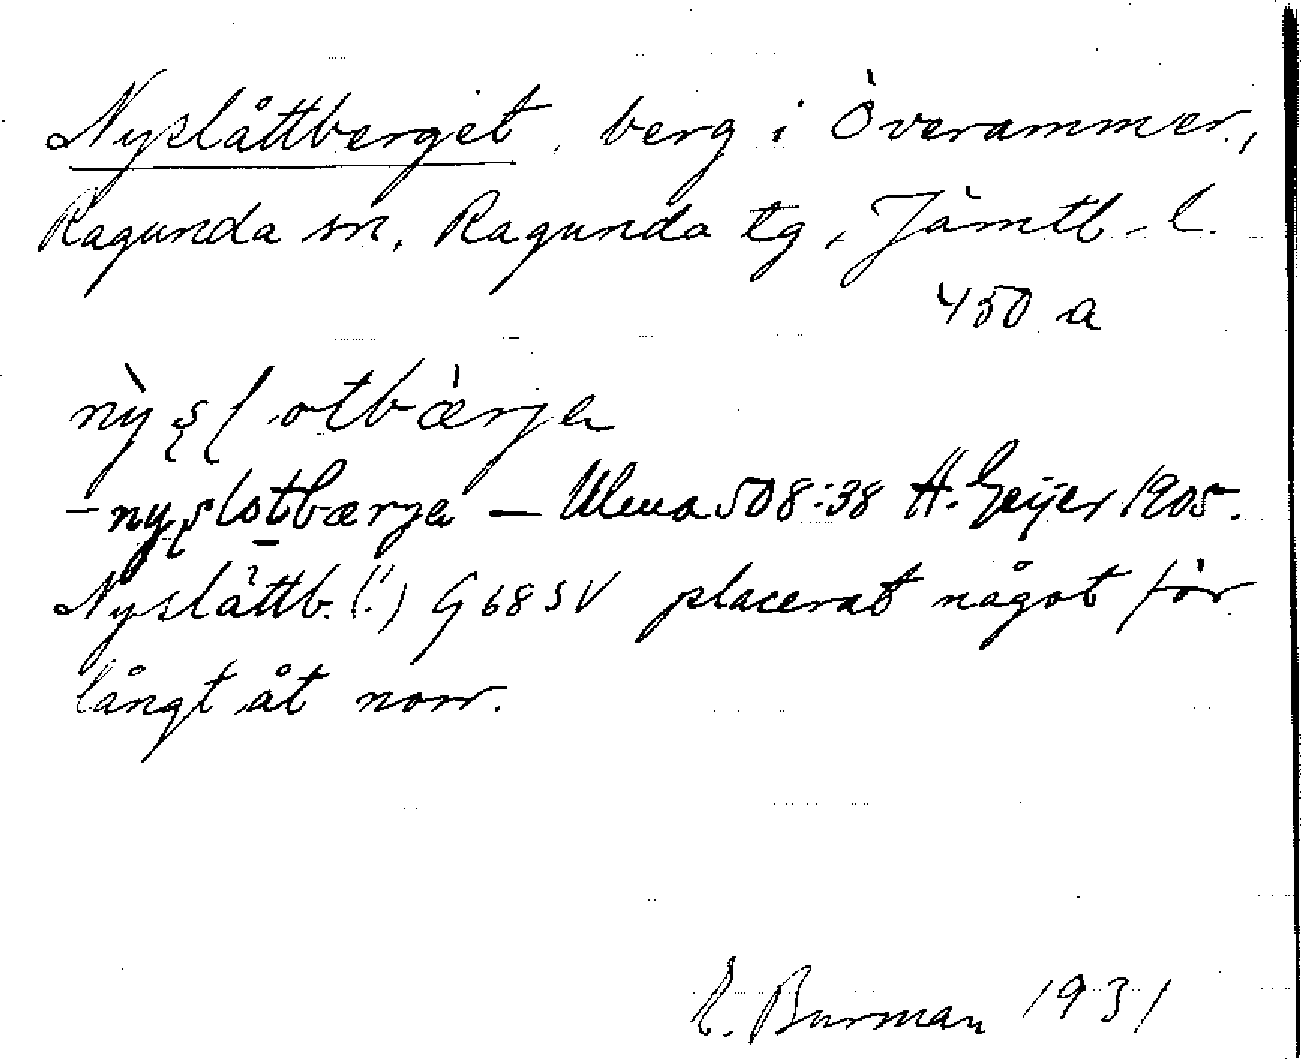 Nyslåttberget, berg i Överammer,
Ragunda sn, Ragunda tg, Jämtl. l.
450 a
nỳʂɭotbærja
– nyʂɭotbærja – Ulma 508:38 H. Geijer 1905.
Nyslättb. (!) G 68 SV placerat något för
långt åt norr.
E. Burman 1931